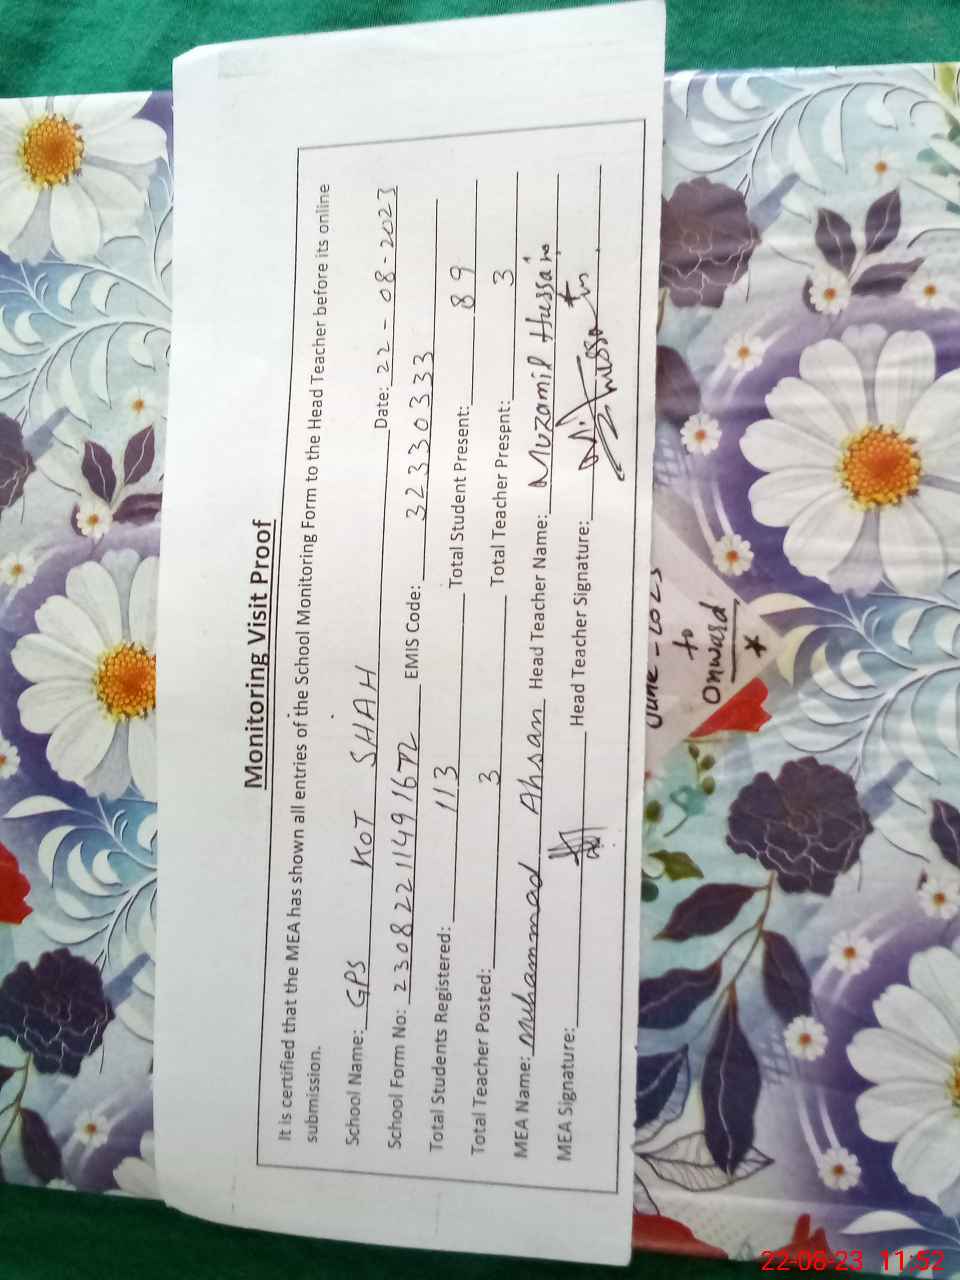 Monitoring Visit Proof
It is certified that the MEA has shown all entries of the School Monitoring Form to the Head Teacher before its online
submission.
School Name: GPS KOT SHAH Date: 22-08-2023
School Form No: 230822114916 EMIS Code: 32330333
Total Students Registered: 113 Total Student Present: 89
Total Teacher Posted: 3 Total Teacher Present: 3
MEA Name: Muhammad Ahsan Head Teacher Name: Muzamil Hussain
MEA Signature: Head Teacher Signature:
June-2023
to
onward
22-08-23 11:52